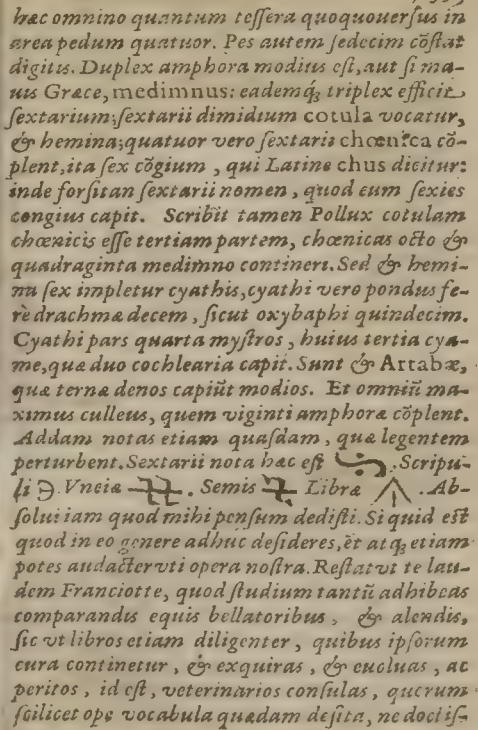 hæc omnino quantum teſſera quoquouerſus in
area pedum quatuor. Pes autem ſedecim cõſtat
digitis. Duplex amphora modius eſt, aut ſi ma-
uis Græce, medimnus: eademq́; triplex efficit
ſextarium; ſextarii dimidium cotula vocatur,
& hemina; quatuor vero ſextarii chœnica cõ-
plent, ita ſex cõgium, qui Latine chus dicitur:
inde forſitan ſextarii nomen, quod eum ſexies
congius capit. Scribit tamen Pollux cotulam
chœnicis eſſe tertiam partem, chœnicas octo &
quadraginta medimno contineri. Sed & hemi-
na ſex impletur cyathis, cyathi vero pondus fe-
rè drachmæ decem, ſicut oxybaphi quindecim.
Cyathi pars quarta myſtros, huius tertia cya-
me, quæ duo cochlearia capit. Sunt & Artabæ,
quæ ternæ denos capiũt modios. Et omniũ ma-
ximus culleus, quem viginti amphoræ cõplent.
Addam notas etiam quaſdam, quæ legentem
perturbent. Sextarii nota hæc eſt . Scripu-
li . Vnciæ . Semis Libræ . Ab-
ſolui iam quod mihi penſum dediſti. Si quid eſt
quod in eo genere adhuc deſideres, et atq; etiam
potes audacter vti opera noſtra. Reſtat vt te lau-
dem Franciotte, quod ſtudium tantũ adhibeas
comparandis equis bellatoribus, & alendis,
ſic vt libros etiam diligenter, quibus ipſorum
cura continetur, & exquiras, & euoluas, ac
peritos, id eſt, veterinarios conſulas, quorum
ſcilicet ope vocabula quædam deſita, ne doctiſ-